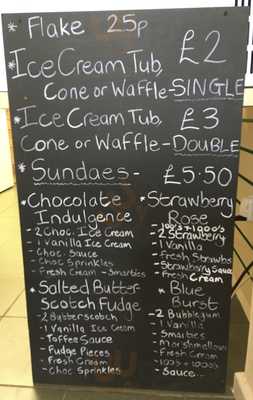 * Flake 25p
* Ice Cream Tub, £2
Cone or Waffle-SINGLE
* Ice Cream Tub, £3
Cone or Waffle-DOUBLE
* Sundaes - £5.50
* Chocolate Indulgence
- 2 Choc. Ice Cream
- 1 Vanilla Ice Cream
- Choc. Sauce
- Choc Sprinkles
- Fresh Cream - Smarties
* Strawberry Rose
- 100's + 1000's
- 2 Strawberry
- 1 Vanilla
- Fresh Strawbs
- Strawberry Sauce
- Fresh Cream
* Salted Butter-
Scotch Fudge
- 2 Butterscotch
- 1 Vanilla Ice Cream
- Toffee Sauce
- Fudge Pieces
- Fresh Cream
- Choc Sprinkles
* Blue Burst
- 2 Bubblegum
- 1 Vanilla
- Smarties
- Marshmallows
- Fresh Cream
- 100's + 1000's
- Sauce...